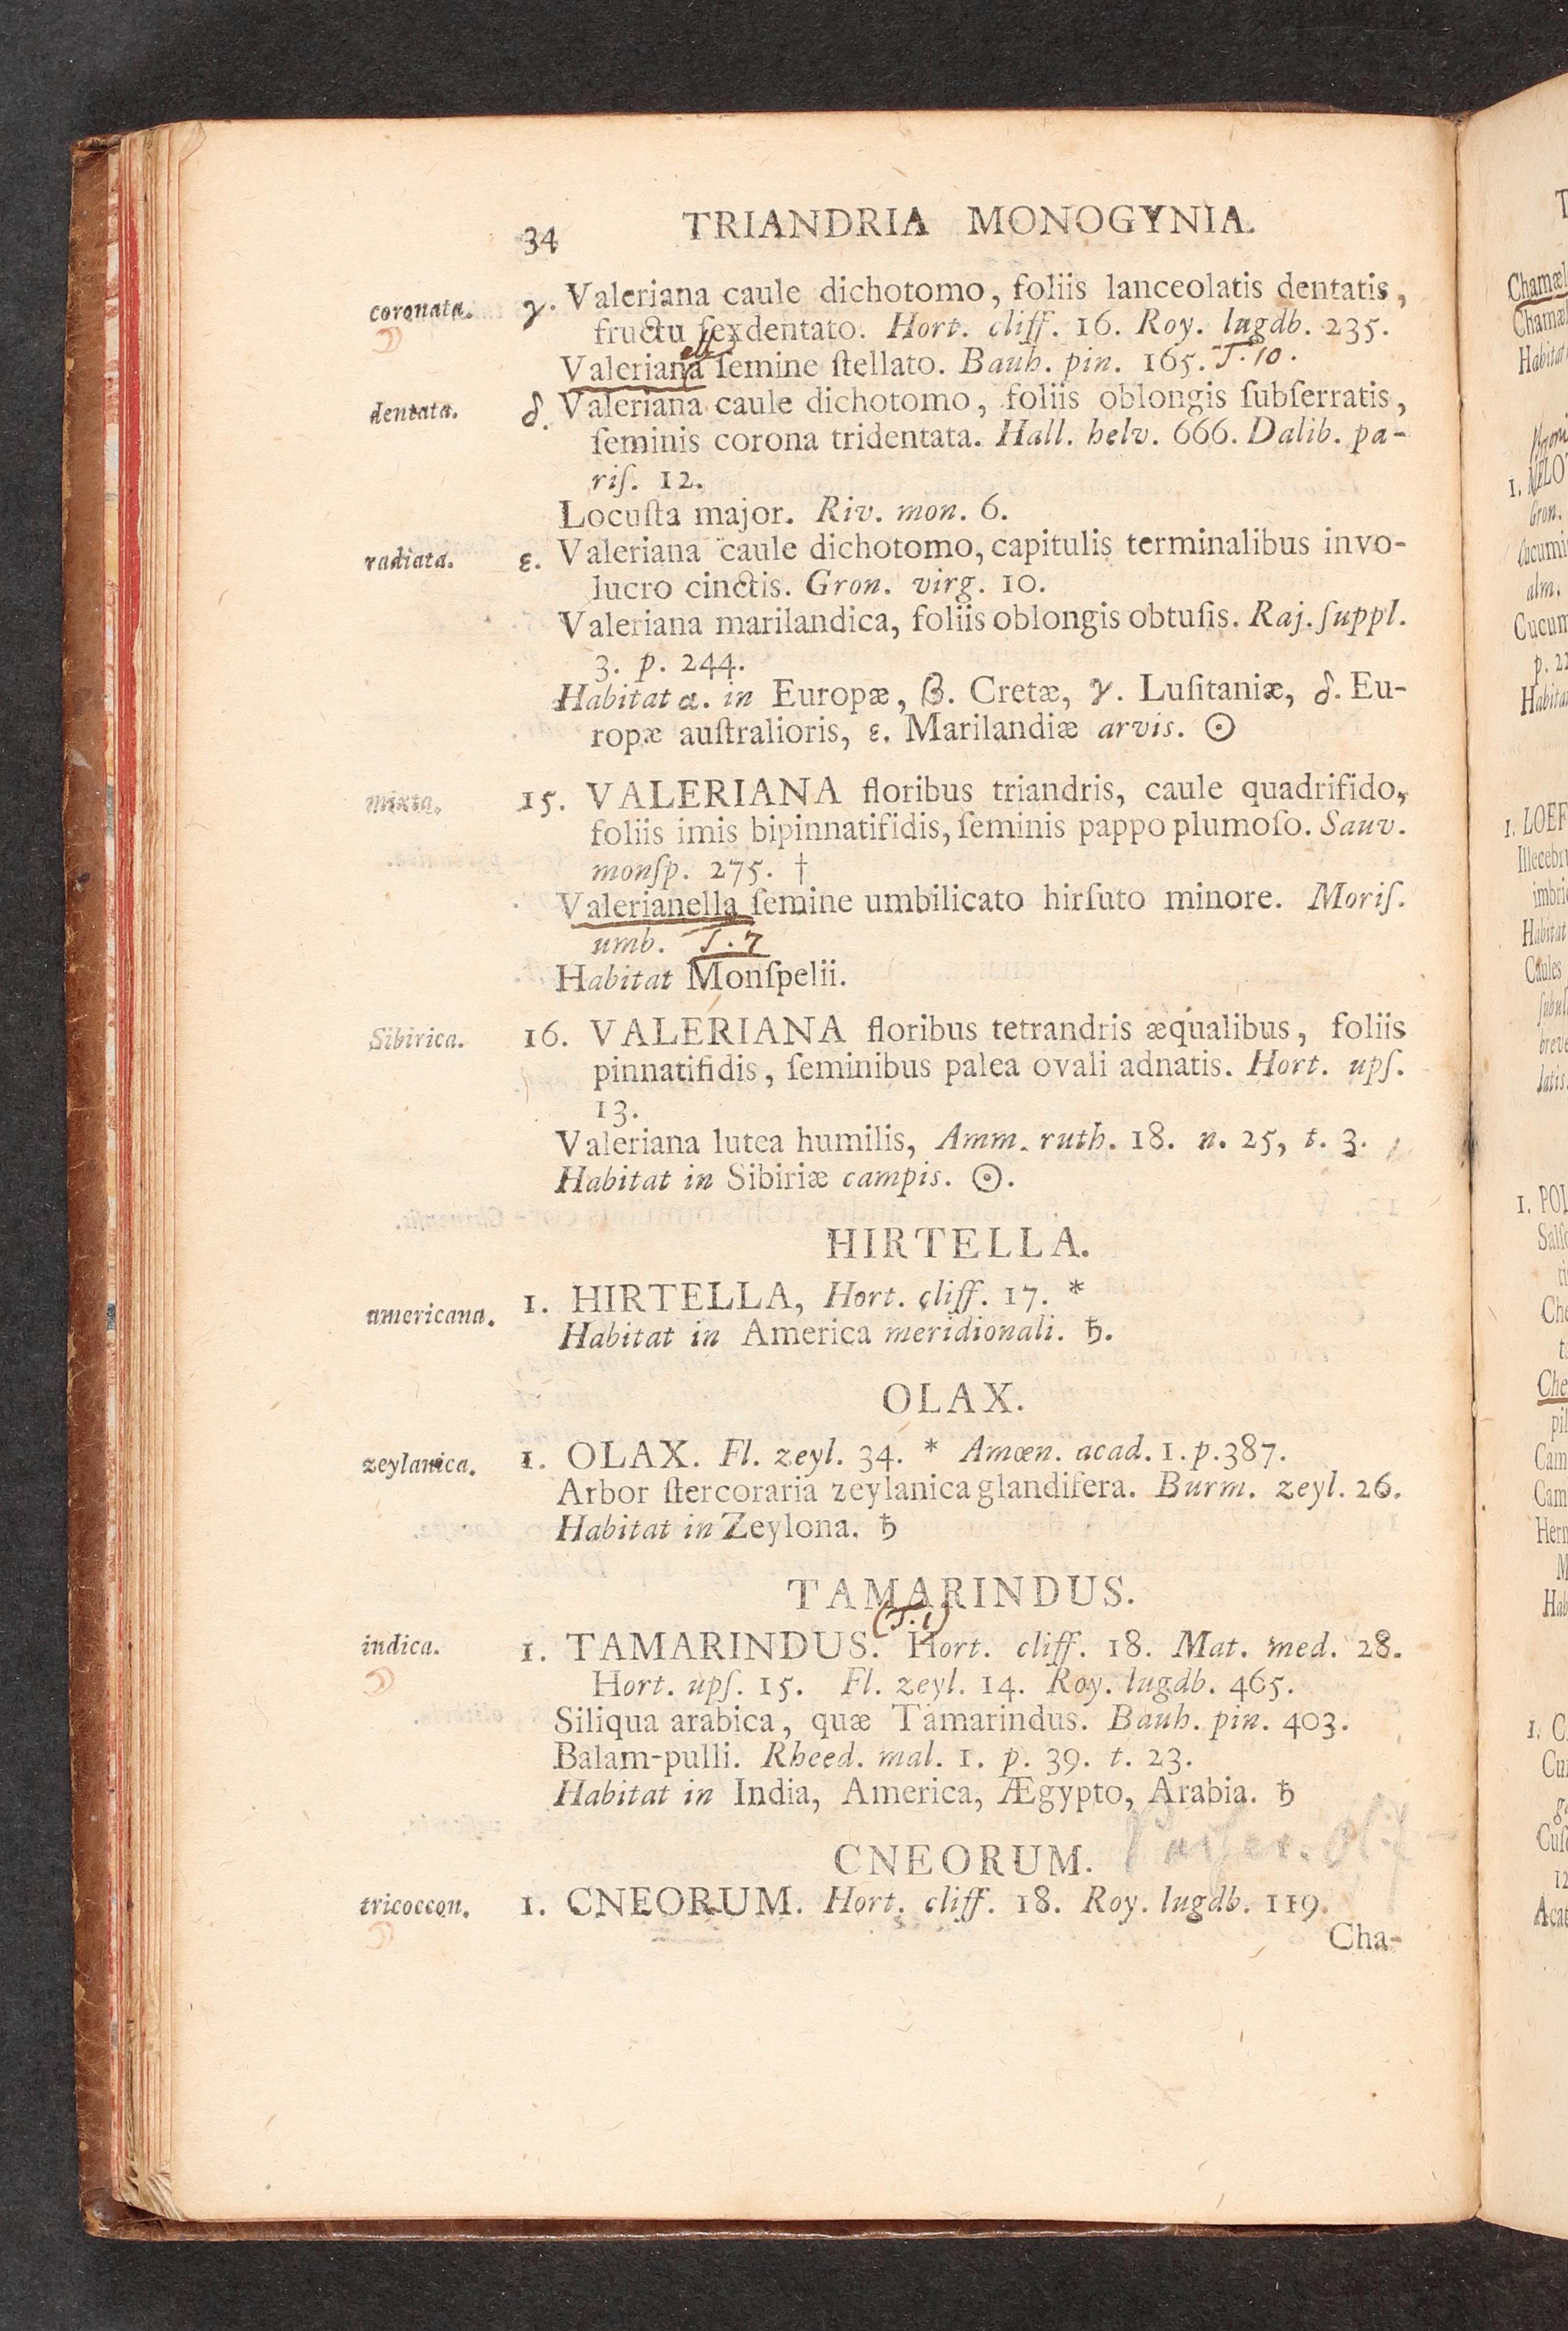 34 TRIANDRIA MONOGYNIA.
coronata. γ. Valeriana caule dichotomo, foliis lanceolatis dentatis,
fructu ſexdentato. Hort. cliff. 16. Roy. lugdb. 235.
ell
Valeriana ſemine ſtellato. Bauh. pin. 165. T. 10.
dentata. δ. Valeriana caule dichotomo, foliis oblongis ſubſerratis,
ſeminis corona tridentata. Hall. helv. 666. Dalib. pa-
riſ. 12.
Locuſta major. Riv. mon. 6.
radiata. ε. Valeriana caule dichotomo, capitulis terminalibus invo-
lucro cinctis. Gron. virg. 10.
Valeriana marilandica, foliis oblongis obtuſis. Raj. ſuppl.
3. p. 244.
Habitat α. in Europæ, β. Cretæ, γ. Luſitaniæ, δ. Eu-
ropæ auſtralioris, ε. Marilandiæ arvis. ☉
mixta. 15. VALERIANA floribus triandris, caule quadrifido,
foliis imis bipinnatifidis, ſeminis pappo plumoſo. Sauv.
monſp. 275. †
Valerianella ſemine umbilicato hirſuto minore. Moriſ.
umb. T. 7
Habitat Monſpelii.
Sibirica. 16. VALERIANA floribus tetrandris æqualibus, foliis
pinnatifidis, ſeminibus palea ovali adnatis. Hort. upſ.
13.
Valeriana lutea humilis, Amm. ruth. 18. n. 25, t. 3.
Habitat in Sibiriæ campis. ☉.
HIRTELLA.
americana. 1. HIRTELLA, Hort. cliff. 17. *
Habitat in America meridionali. ♄.
OLAX.
zeylanica. 1. OLAX. Fl. zeyl. 34. * Amœn. acad. 1. p. 387.
Arbor ſtercoraria zeylanica glandifera. Burm. zeyl. 26.
Habitat in Zeylona. ♄
TAMARINDUS.
(T. 1)
indica. 1. TAMARINDUS. Hort. cliff. 18. Mat. med. 28.
Hort. upſ. 15. Fl. zeyl. 14. Roy. lugdb. 465.
Siliqua arabica, quæ Tamarindus. Bauh. pin. 403.
Balam-pulli. Rheed. mal. 1. p. 39. t. 23.
Habitat in India, America, Ægypto, Arabia. ♄
CNEORUM.
tricoccon. 1. CNEORUM. Hort. cliff. 18. Roy. lugdb. 119.
Cha-